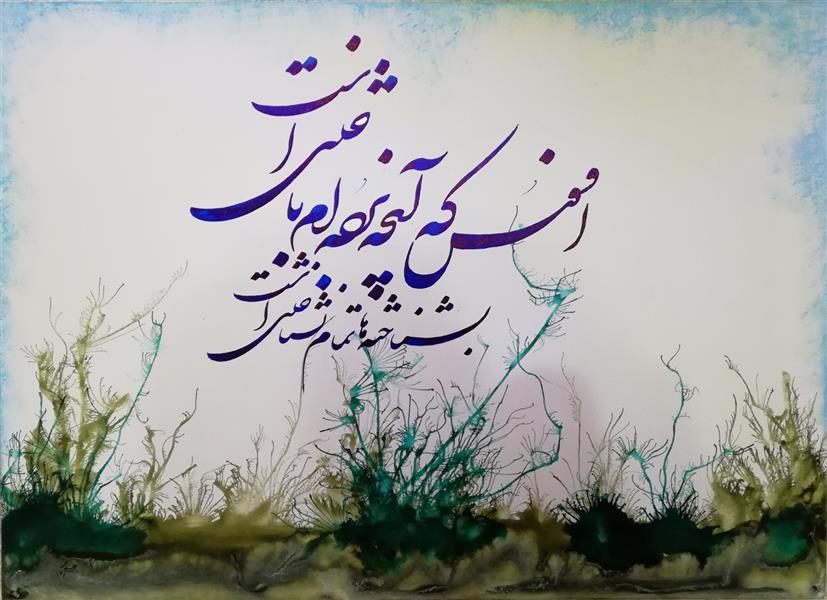 افسوس که آنچه برده‌ام باختنی است
بشناخته‌ها تمام نشناختنی است